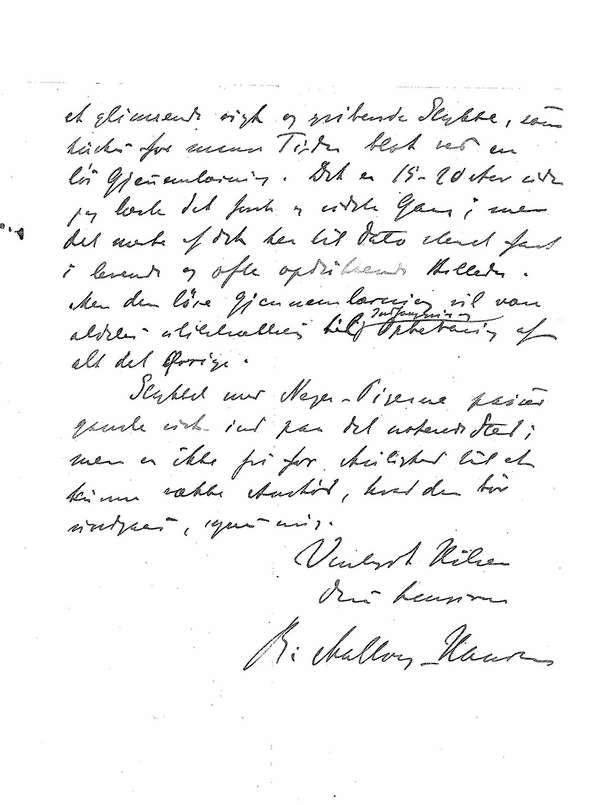 et glimrende rigt og gribende Stykke, som
for mine Tider blot ved en
løs Gjennemlæsning. Det er 15-20 Aar siden
jeg læste det første og sidste Gang; men
det meste af det har til Dato staaet fast
i levende og ofte Billeder.
Men den løse Gjennemlæsning vil være
aldeles utilstrækkelig til Opfatning af
alt det Øvrige.
Stykket med Neger-Pigerne passer
ganske vist ind paa det Sted;
men er ikke fri for Mulighed til at
kunne vække Anstød, hvad den bør
undgaa, synes mig.
Venligst Hilsen
Deres hengivne
R. Malling-Hansen